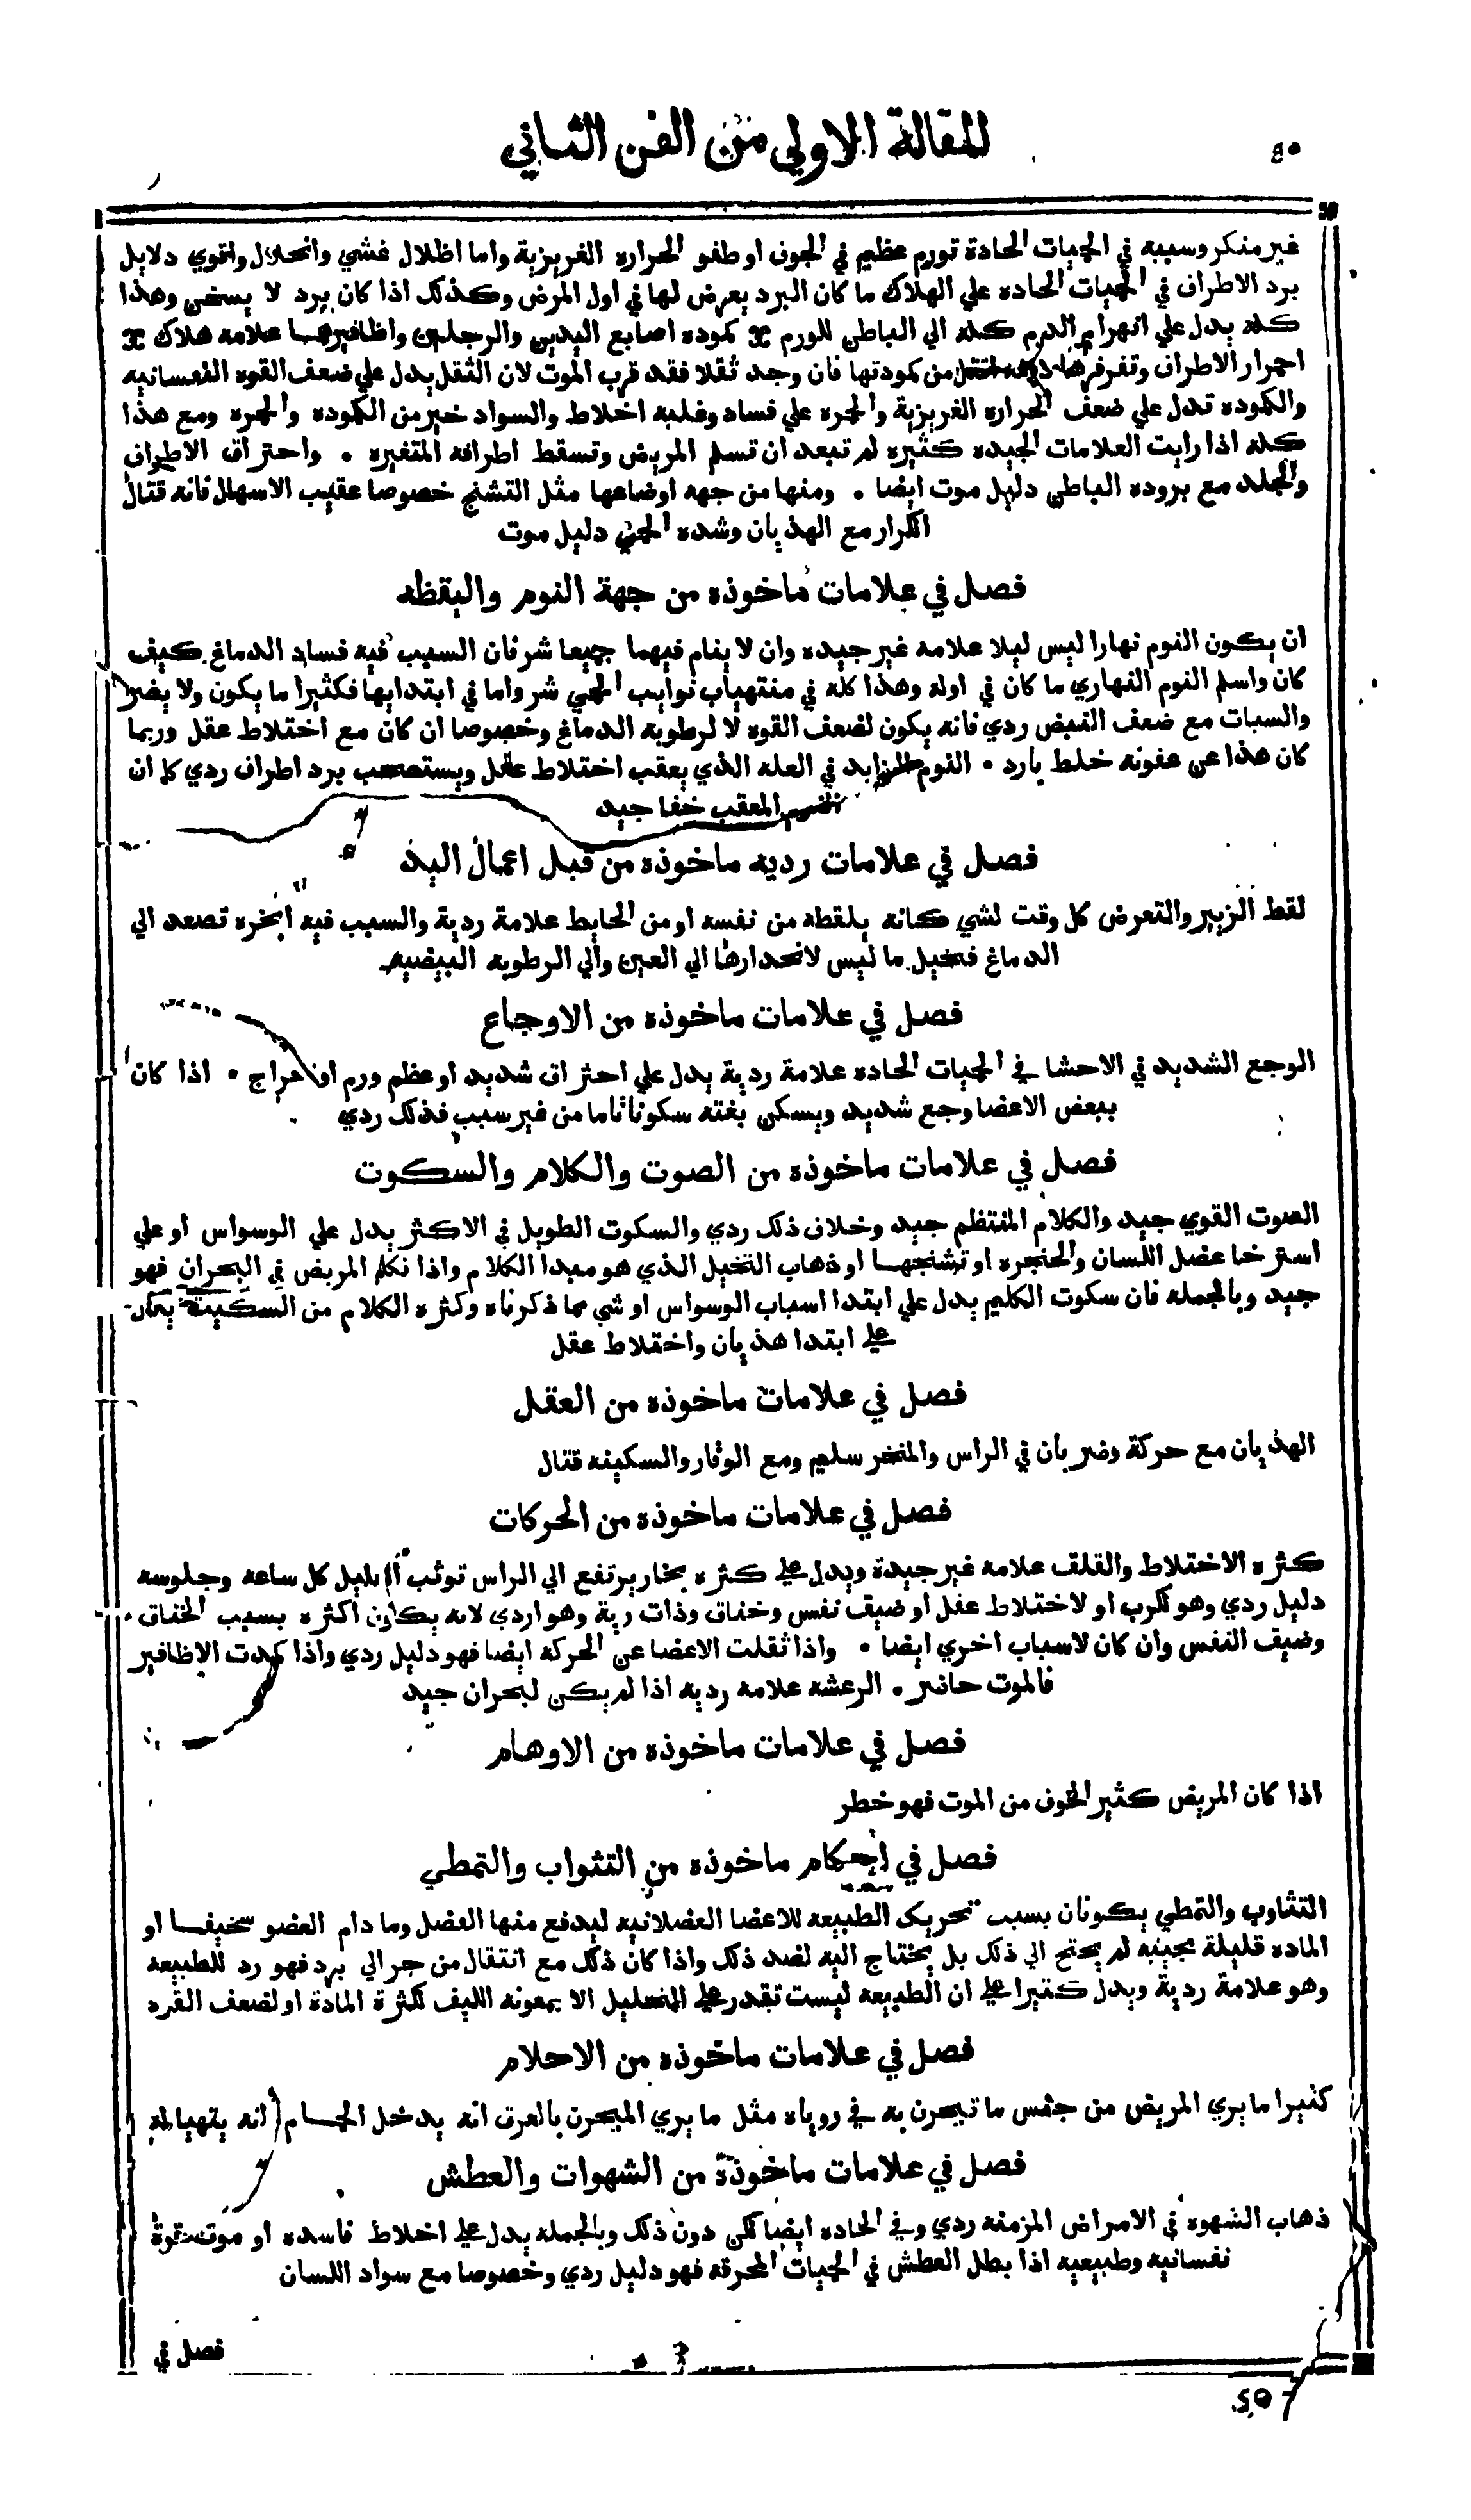 ٥٠
المقالة الاولي من الفن الثاني
غير منكر وسببه في الحميات الحادة تورم عظيم في الجوف او طفو الحراره الغريزية واما اظلال غشي وانحلال واقوي دلايل
برد الاطراف في الحميات الحاده علي الهلاك ما كان البرد يعرض لها في اول المرض وكذلك اذا كان برد لا يسخن وهذا
كله يدل علي انهزام الدم كله الي الباطن للورم كموده اصابع اليدين والرجلين واظافيرهما علامه هلاك
احمرار الاطراف من كمودتها فان وجد ثقلا فقد قرب الموت لان الثقل يدل علي ضعف القوه النفسانيه
والكموده تدل علي ضعف الحراره الغريزية والحمره علي فساد وغلبه اخلاط والسواد خير من الكموده والحمره ومع هذا
كله اذا رايت العلامات الجيده كثيره لم تبعد ان تسلم المريض وتسقط اطرافه المتغيره • واحتراق الاطراف
والجلد مع بروده الباطن دليل موت ايضا • ومنها من جهه اوضاعها مثل التشنج خصوصا عقيب الاسهال فانه قتال
الكزاز مع الهذيان وشده الحمي دليل موت
فصل في علامات ماخوذه من جهة النوم واليقظه
ان يكون النوم نهارا ليس ليلا علامه غير جيده وان لا ينام فيهما جميعا شر فان السبب فيه فساد الدماغ كيف
كان واسلم النوم النهاري ما كان في اوله وهذا كله في منتهيات نوايب الحمي شر واما في ابتدايها فكثيرا ما يكون ولا يضر
والسبات مع ضعف النبض ردي فانه يكون لضعف القوه لا لرطوبه الدماغ وخصوصا ان كان مع اختلاط عقل وربما
كان هذا عن عفونه خلط بارد • النوم الزايد في العله الذي يعقب اختلاط عقل ويستصحب برد اطراف ردي كما ان
النوم المعقب خفا جيد
فصل في علامات رديه ماخوذه من قبل اعمال اليد
لقط الزبير والتعرض كل وقت لشي كانه يلقطه من نفسه او من الحايط علامة ردية والسبب فيه ابخره تصعد الي
الدماغ فتخيل ما ليس لانحدارها الي العين والي الرطوبه البيضيه
فصل في علامات ماخوذه من الاوجاع
الوجع الشديد في الاحشا في الحميات الحاده علامة ردية يدل علي احتراق شديد او عظم ورم او خراج • اذا كان
ببعض الاعضا وجع شديد ويسكن بغته سكونا تاما من غير سبب فذلك ردي
فصل في علامات ماخوذه من الصوت والكلام والسكوت
الصوت القوي جيد والكلام المنتظم جيد وخلاف ذلك ردي والسكوت الطويل في الاكثر يدل علي الوسواس او علي
استرخا عضل اللسان والحنجره او تشنجهما او ذهاب التخيل الذي هو مبدا الكلام واذا تكلم المريض في البحران فهو
جيد وبالجمله فان سكوت الكليم يدل علي ابتدا اسباب الوسواس او شي مما ذكرناه وكثره الكلام من السكيت يدل
علي ابتدا هذيان واختلاط عقل
فصل في علامات ماخوذه من العقل
الهذيان مع حركة وضربان في الراس والمنخر سليم ومع الوقار والسكينه قتال
فصل في علامات ماخوذه من الحركات
كثره الاختلاط والقلق علامه غير جيدة ويدل علي كثره بخار يرتفع الي الراس توثب العليل كل ساعه وجلوسه
دليل ردي وهو لكرب او لاختلاط عقل او ضيق نفس وخناق وذات رية وهو اردي لانه يكون اكثره بسبب الخناق
وضيق النفس وان كان لاسباب اخري ايضا • واذا ثقلت الاعضا عن الحركه ايضا فهو دليل ردي واذا كمدت الاظافير
فالموت حاضر • الرعشه علامه رديه اذا لم يكن لبحران جيد
فصل في علامات ماخوذه من الاوهام
اذا كان المريض كثير الخوف من الموت فهو خطر
فصل في احكام ماخوذه من التثواب والتمطي
التثاوب والتمطي يكونان بسبب تحريك الطبيعه للاعضا العضلانيه ليدفع منها الفضل وما دام العضو سخيفا او
الماده قليلة مجيبه لم يحتج الي ذلك بل يحتاج اليه لضد ذلك واذا كان ذلك مع انتقال من حر الي برد فهو رد للطبيعه
وهو علامة ردية ويدل كثيرا علي ان الطبيعه ليست تقدر علي التحليل الا بمعونه الليف لكثرة المادة او لضعف القرد
فصل في علامات ماخوذه من الاحلام
كثيرا ما يري المريض من جنس ما تبحرن به في روياه مثل ما يري المبحرن بالعرق انه يدخل الحمام انه يتهيا له
فصل في علامات ماخوذة من الشهوات والعطش
ذهاب الشهوه في الامراض المزمنه ردي وفي الحاده ايضا لكن دون ذلك وبالجمله يدل علي اخلاط فاسده او موت قوة
نفسانيه وطبيعيه اذا بطل العطش في الحميات المحرقه فهو دليل ردي وخصوصا مع سواد اللسان
فصل في